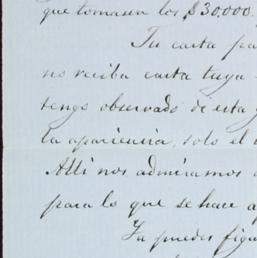 que tomasen los $30.000.
Tu carta pa
no reciba carta tuya
tengo observado de esta
la apariencia, solo el
Alli nos admiramos
para lo que se hace a
Ya puedes figu